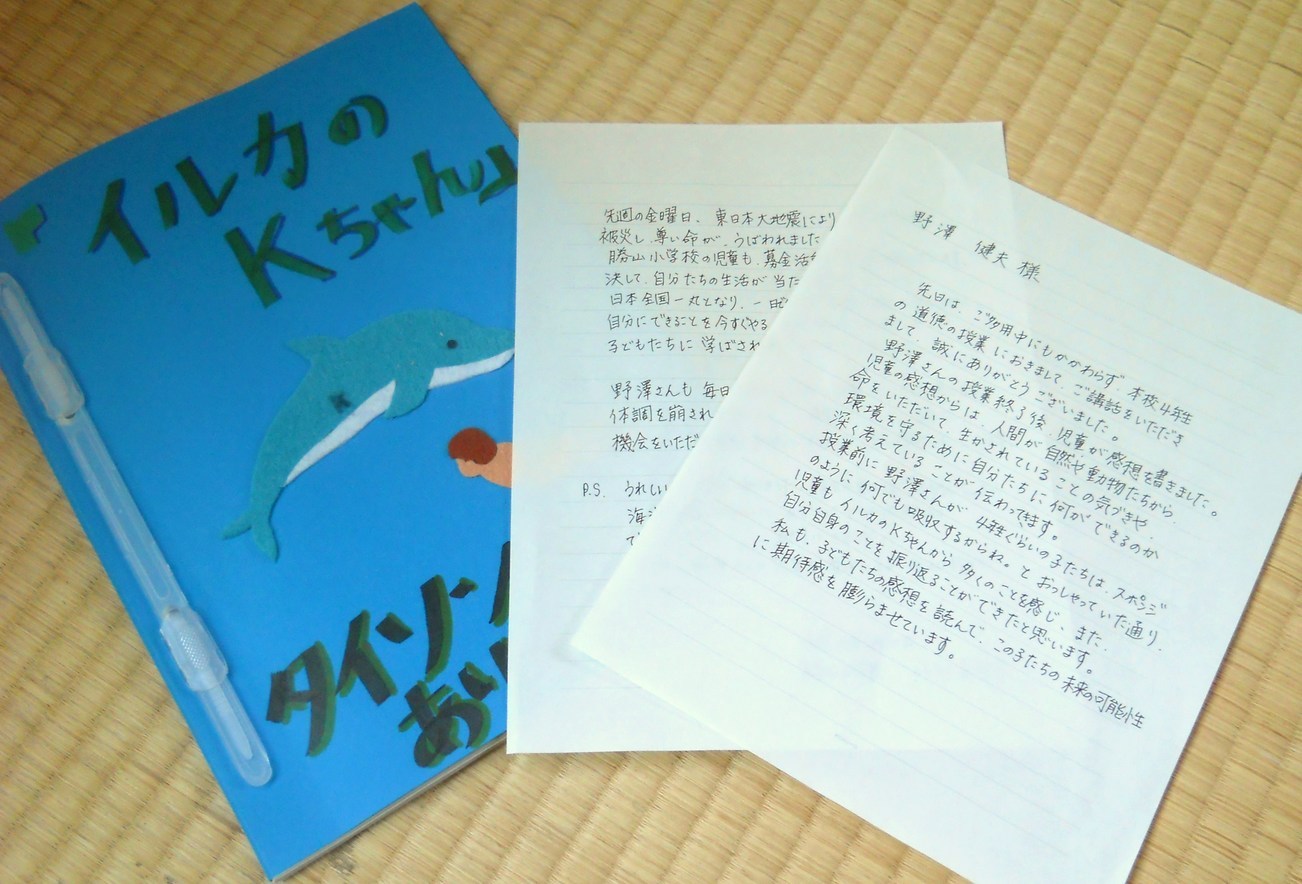 『イルカの
Kちゃん』
K
タイゾ
あり
先週の金曜日、東日本大地震により
被災し、尊い命が、うばわれました
勝山小学校の児童も、募金活
決して、自分たちの生活が 当た
日本全国一丸となり、一日
自分にできることを今すぐやる
子どもたちに 学ばされ
野澤さんも 毎日
体調を崩され
機会をいただ
P.S. うれしい
海
で
野澤 健夫 様
先日は、ご多用中にもかかわらず、本校4年生
の道徳の授業におきまして、ご講話をいただき
まして、誠にありがとうございました。
野澤さんの授業終了後、児童が感想を書きました。
児童の感想からは、人間が、自然や動物たちから
命をいただいて、生かされていることの気づきや、
環境を守るために自分たちに何ができるのか
深く考えていることが伝わってきます。
授業前に野澤さんが、4年生ぐらいの子たちは、スポンジ
のように何でも吸収するからね。とおっしゃっていた通り、
児童もイルカのKちゃんから多くのことを感じ、また、
自分自身のことを振り返ることができたと思います。
私も、子どもたちの感想を読んで、この子たちの未来の可能性
に期待感を膨らませています。